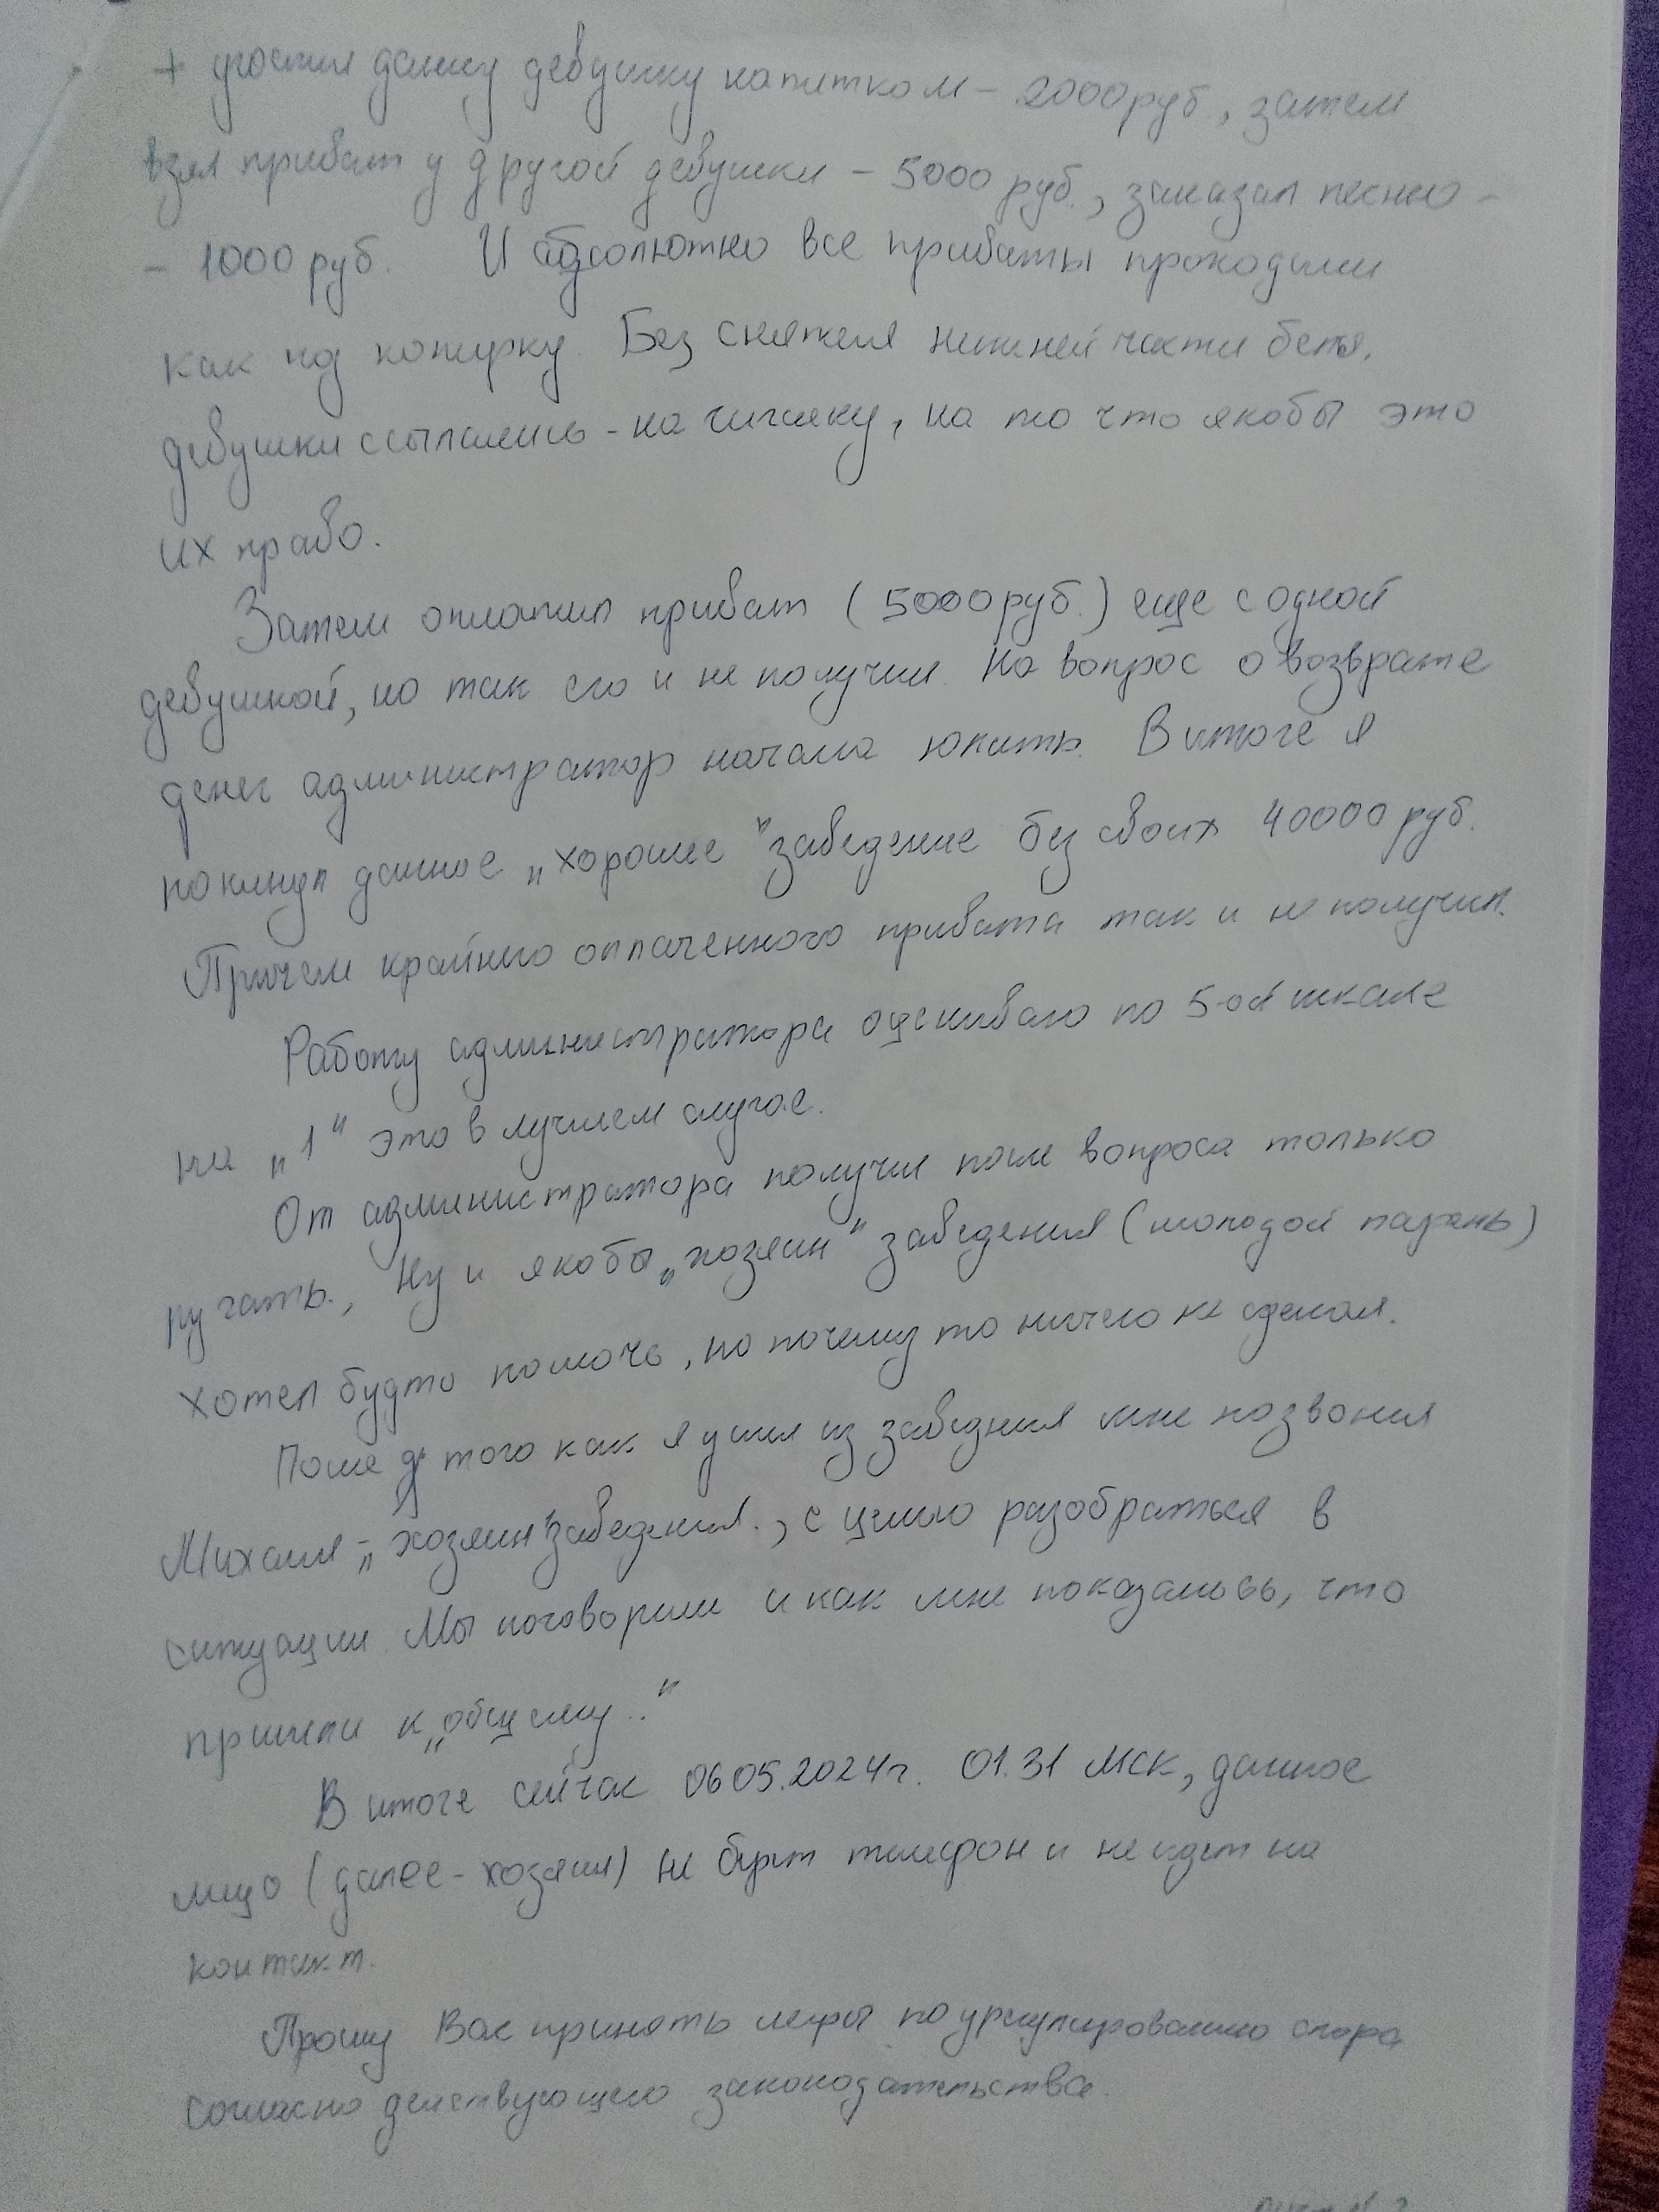 + угостил данну девушку напитком - 2000 руб., затем
взял приват у другой девушки - 5000 руб., заказал песню -
- 1000 руб. И абсолютно все приваты проходили
как под копирку. Без снятия нижней части белья,
девушки ссылались - на чигияну, на то что якобы это
их право.
Затем оплатил приват (5000 руб.) еще с одной
девушкой, но так его и не получил. На вопрос о возврате
денег администратор начала юлить. В итоге я
покинул данное „хорошее" заведение без своих 40000 руб.
Причем крайнего оплаченного привата так и не получил.
Работу администратора оцениваю по 5-ой шкале
на „1" это в лучшем случае.
От администратора получил после вопроса только
ругать., Ну и якобы „хозяин" заведения (молодой парень)
хотел будто помочь, но почему то ничего не сделал.
После того как я ушел из заведния мне позвонил
Михаил - „хозяин" заведения., с целью разобраться в
ситуации. Мы поговорили и как мне показалось, что
пришли к „общему.."
В итоге сейчас 06 05.2024г. 01.31 МСК, данное
лицо (далее - хозяин) не берет телефон и не идет на
контакт.
Прошу Вас принять меры по урегулированию спора
согласно действующего законодательства.